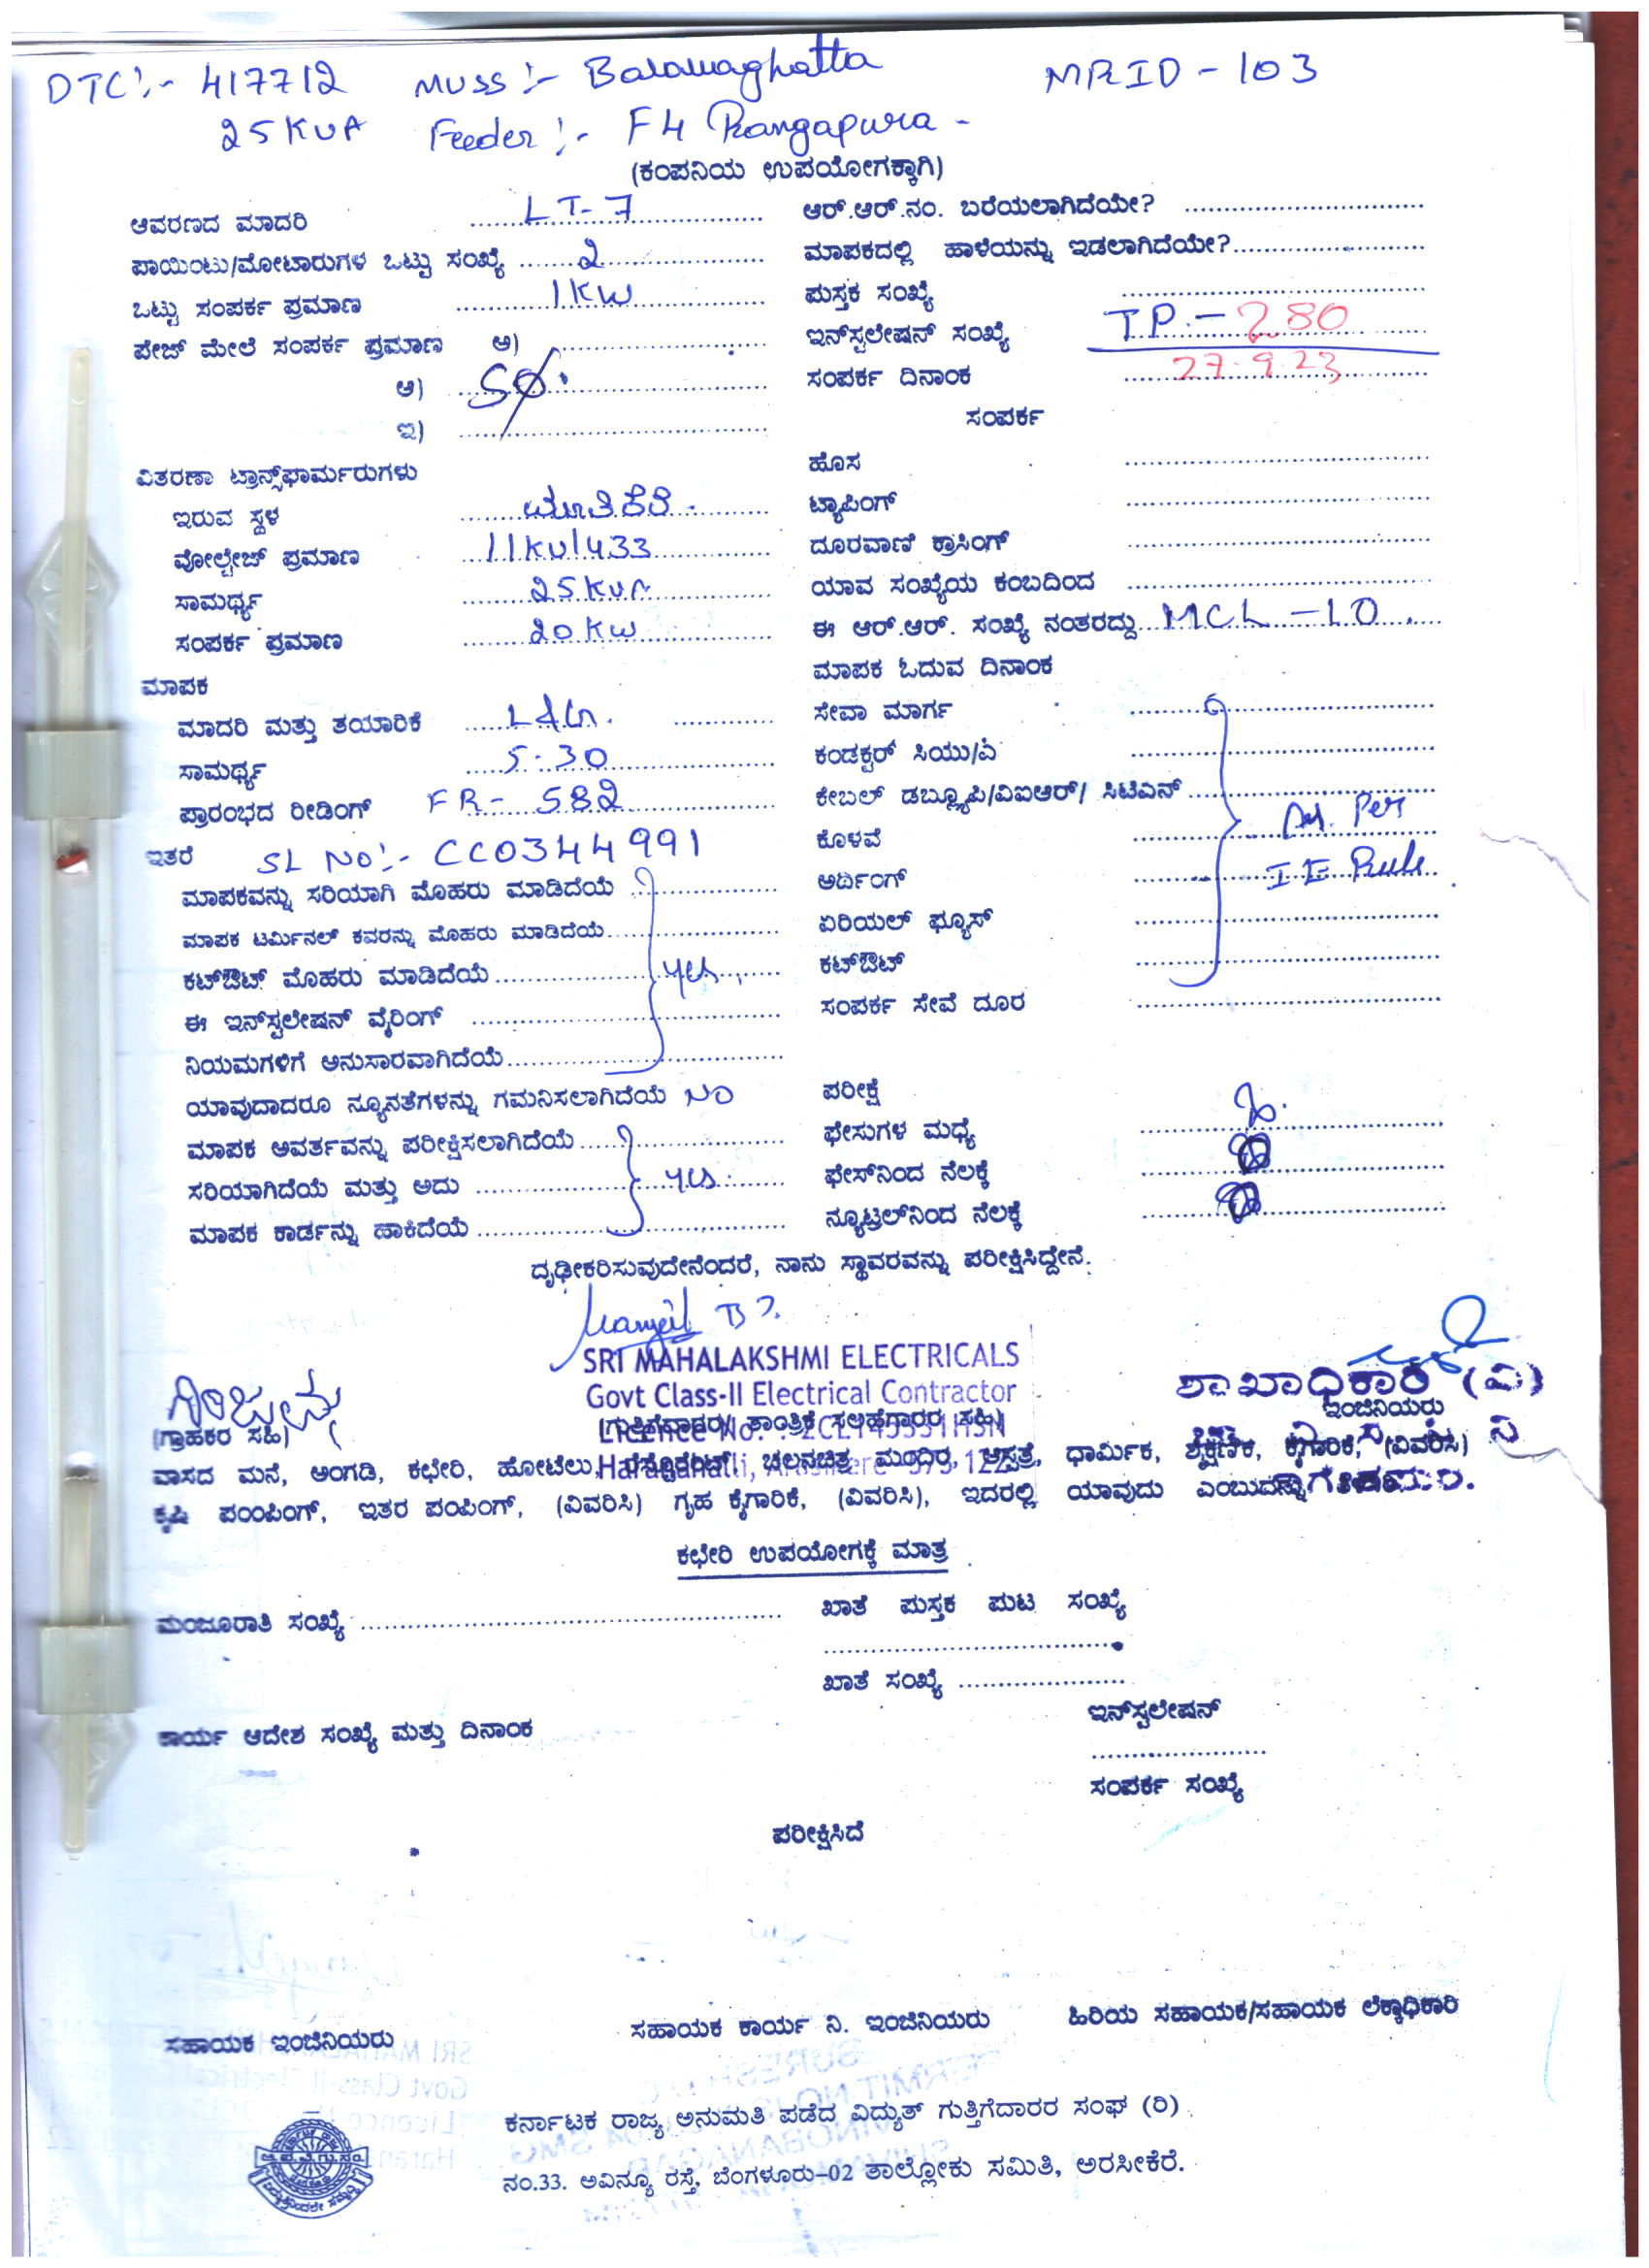 DTC:- 417712 MUSS:- Balawaghatta MRID-103
25KVA Feeder:- F4 Rangapura-
(ಕಂಪನಿಯ ಉಪಯೋಗಕ್ಕಾಗಿ)
ಆವರಣದ ಮಾದರಿ LT-7
ಪಾಯಿಂಟು/ಮೋಟಾರುಗಳ ಒಟ್ಟು ಸಂಖ್ಯೆ 2
ಒಟ್ಟು ಸಂಪರ್ಕ ಪ್ರಮಾಣ 1KW
ಪೇಜ್ ಮೇಲೆ ಸಂಪರ್ಕ ಪ್ರಮಾಣ ಅ)
ಆ)
ಇ)
ವಿತರಣಾ ಟ್ರಾನ್ಸ್‌ಫಾರ್ಮರುಗಳು
ಇರುವ ಸ್ಥಳ
ವೋಲ್ಟೇಜ್ ಪ್ರಮಾಣ 11KV/433
ಸಾಮರ್ಥ್ಯ 25KVA
ಸಂಪರ್ಕ ಪ್ರಮಾಣ 20KW
ಮಾಪಕ
ಮಾದರಿ ಮತ್ತು ತಯಾರಿಕೆ L&G.
ಸಾಮರ್ಥ್ಯ 5-30
ಪ್ರಾರಂಭದ ರೀಡಿಂಗ್ FR- 582
ಇತರೆ SL NO:- CC0344991
ಮಾಪಕವನ್ನು ಸರಿಯಾಗಿ ಮೊಹರು ಮಾಡಿದೆಯೆ
ಮಾಪಕ ಟರ್ಮಿನಲ್ ಕವರನ್ನು ಮೊಹರು ಮಾಡಿದೆಯೆ
ಕಟ್‌ಔಟ್ ಮೊಹರು ಮಾಡಿದೆಯೆ yes
ಈ ಇನ್‌ಸ್ಟಲೇಷನ್ ವೈರಿಂಗ್
ನಿಯಮಗಳಿಗೆ ಅನುಸಾರವಾಗಿದೆಯೆ
ಯಾವುದಾದರೂ ನ್ಯೂನತೆಗಳನ್ನು ಗಮನಿಸಲಾಗಿದೆಯೆ NO
ಮಾಪಕ ಅವರ್ತವನ್ನು ಪರೀಕ್ಷಿಸಲಾಗಿದೆಯೆ
ಸರಿಯಾಗಿದೆಯೆ ಮತ್ತು ಅದು yes
ಮಾಪಕ ಕಾರ್ಡನ್ನು ಹಾಕಿದೆಯೆ
ಆರ್.ಆರ್.ನಂ. ಬರೆಯಲಾಗಿದೆಯೇ?
ಮಾಪಕದಲ್ಲಿ ಹಾಳೆಯನ್ನು ಇಡಲಾಗಿದೆಯೇ?
ಪುಸ್ತಕ ಸಂಖ್ಯೆ
ಇನ್‌ಸ್ಟಲೇಷನ್ ಸಂಖ್ಯೆ T.P.-280
ಸಂಪರ್ಕ ದಿನಾಂಕ 27.9.23
ಸಂಪರ್ಕ
ಹೊಸ
ಟ್ಯಾಪಿಂಗ್
ದೂರವಾಣಿ ಕ್ರಾಸಿಂಗ್
ಯಾವ ಸಂಖ್ಯೆಯ ಕಂಬದಿಂದ
ಈ ಆರ್.ಆರ್. ಸಂಖ್ಯೆ ನಂತರದ್ದು MCL-10
ಮಾಪಕ ಓದುವ ದಿನಾಂಕ
ಸೇವಾ ಮಾರ್ಗ
ಕಂಡಕ್ಟರ್ ಸಿಯು/ಎ
ಕೇಬಲ್ ಡಬ್ಲ್ಯೂಪಿ/ವಿಐಆರ್/ ಸಿಟಿಎಸ್
ಕೊಳವೆ As Per
ಅರ್ದಿಂಗ್ I E Rule
ಏರಿಯಲ್ ಫ್ಯೂಸ್
ಕಟ್‌ಔಟ್
ಸಂಪರ್ಕ ಸೇವೆ ದೂರ
ಪರೀಕ್ಷೆ
ಫೇಸುಗಳ ಮಧ್ಯೆ
ಫೇಸ್‌ನಿಂದ ನೆಲಕ್ಕೆ
ನ್ಯೂಟ್ರಲ್‌ನಿಂದ ನೆಲಕ್ಕೆ
ದೃಢೀಕರಿಸುವುದೇನೆಂದರೆ, ನಾನು ಸ್ಥಾವರವನ್ನು ಪರೀಕ್ಷಿಸಿದ್ದೇನೆ.
SRI MAHALAKSHMI ELECTRICALS
Govt Class-II Electrical Contractor
ಶಾಖಾಧಿಕಾರಿ (ವಿ)
ಇಂಜಿನಿಯರು
(ಗ್ರಾಹಕರ ಸಹಿ) (ಗುತ್ತಿಗೆದಾರರ/ ತಾಂತ್ರಿಕ ಸಲಹೆಗಾರರ ಸಹಿ)
ವಾಸದ ಮನೆ, ಅಂಗಡಿ, ಕಛೇರಿ, ಹೋಟೆಲು, ರೆಸ್ಟೊರೆಂಟ್, ಚಲನಚಿತ್ರ ಮಂದಿರ, ಆಸ್ಪತ್ರೆ, ಧಾರ್ಮಿಕ, ಶೈಕ್ಷಣಿಕ, ಕೈಗಾರಿಕೆ, (ವಿವರಿಸಿ)
ಕೃಷಿ ಪಂಪಿಂಗ್, ಇತರ ಪಂಪಿಂಗ್, (ವಿವರಿಸಿ) ಗೃಹ ಕೈಗಾರಿಕೆ, (ವಿವರಿಸಿ), ಇದರಲ್ಲಿ ಯಾವುದು ಎಂಬುದನ್ನು
ಕಛೇರಿ ಉಪಯೋಗಕ್ಕೆ ಮಾತ್ರ
ಮಂಜೂರಾತಿ ಸಂಖ್ಯೆ ಖಾತೆ ಪುಸ್ತಕ ಪುಟ ಸಂಖ್ಯೆ
ಖಾತೆ ಸಂಖ್ಯೆ
ಇನ್‌ಸ್ಟಲೇಷನ್
ಕಾರ್ಯ ಆದೇಶ ಸಂಖ್ಯೆ ಮತ್ತು ದಿನಾಂಕ
ಸಂಪರ್ಕ ಸಂಖ್ಯೆ
ಪರೀಕ್ಷಿಸಿದೆ
ಸಹಾಯಕ ಇಂಜಿನಿಯರು ಸಹಾಯಕ ಕಾರ್ಯ ನಿ. ಇಂಜಿನಿಯರು ಹಿರಿಯ ಸಹಾಯಕ/ಸಹಾಯಕ ಲೆಕ್ಕಾಧಿಕಾರಿ
ಕರ್ನಾಟಕ ರಾಜ್ಯ ಅನುಮತಿ ಪಡೆದ ವಿದ್ಯುತ್ ಗುತ್ತಿಗೆದಾರರ ಸಂಘ (ರಿ)
ನಂ.33. ಅವಿನ್ಯೂ ರಸ್ತೆ, ಬೆಂಗಳೂರು-02 ತಾಲ್ಲೋಕು ಸಮಿತಿ, ಅರಸೀಕೆರೆ.